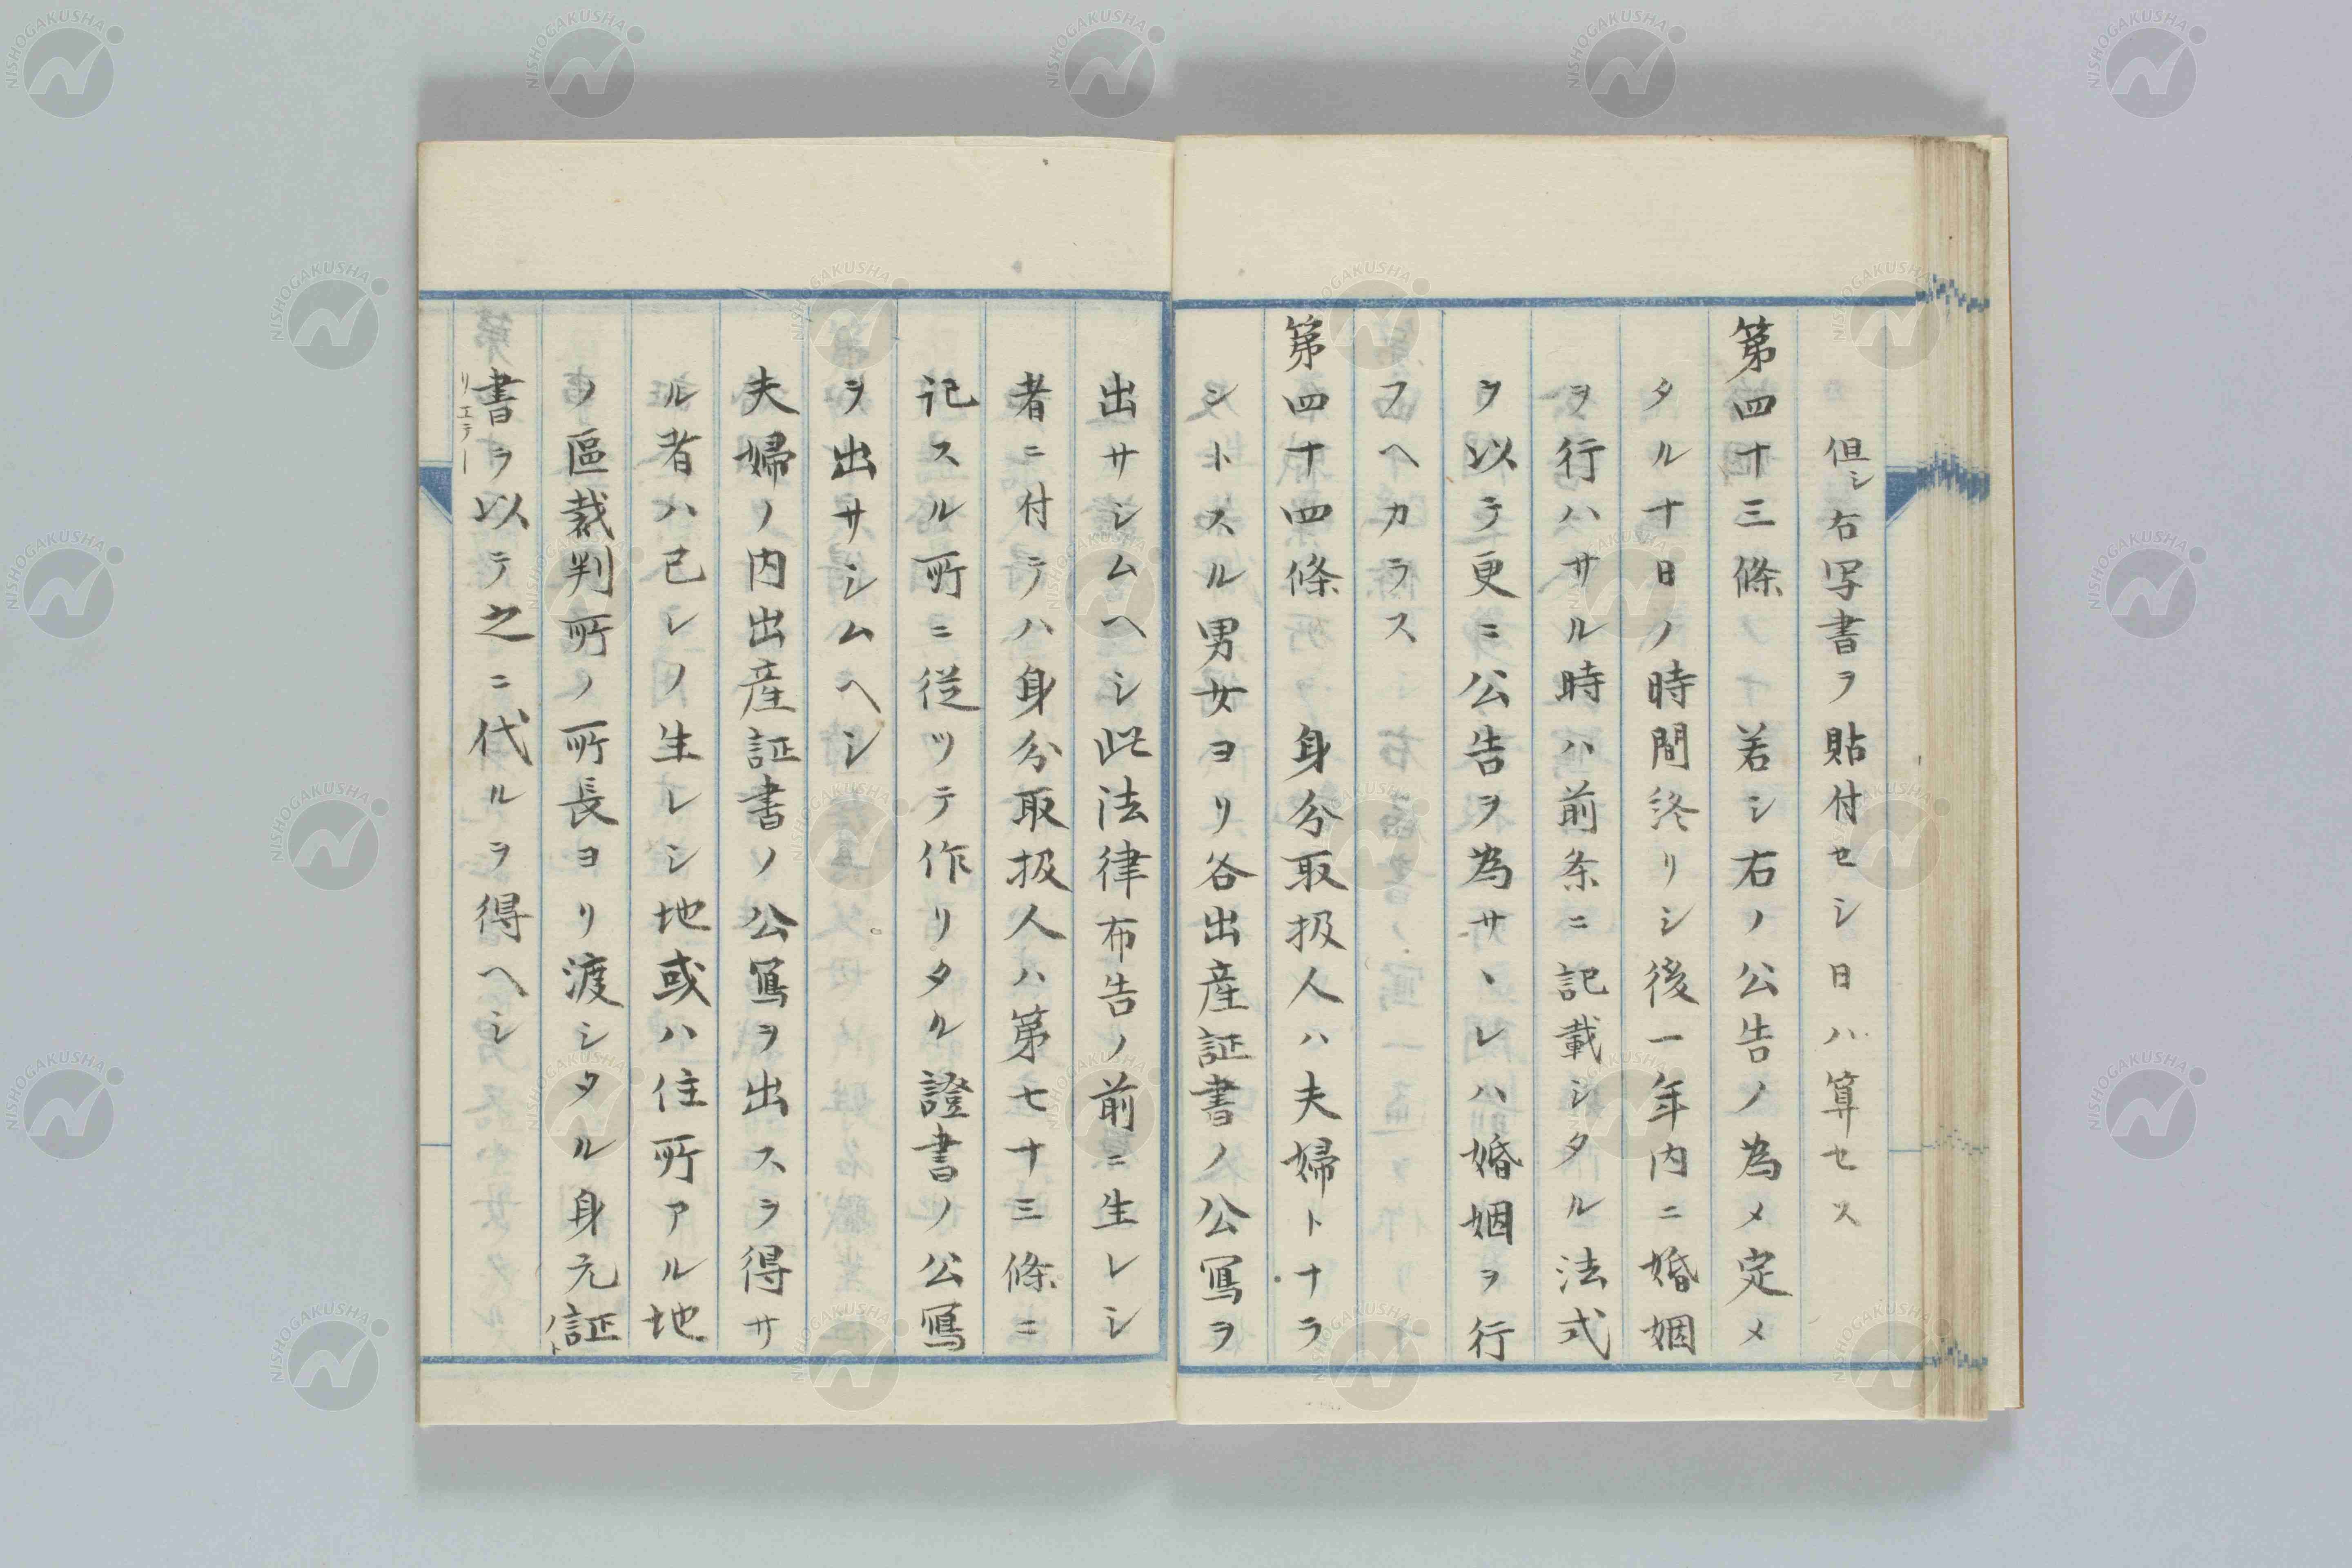 但シ右写書ヲ貼付セシ日ハ算セス
第四十三條 若シ右ノ公告ノ為メ定メ
タル十日ノ時間終リシ後一年内ニ婚姻
ヲ行ハサル時ハ前条ニ記載シタル法式
ヲ以テ更ニ公告ヲ為サヽレハ婚姻ヲ行
フヘカラス
第四十四條 身分取扱人ハ夫婦トナラ
ントスル男女ヨリ各出産証書ノ公寫ヲ
出サシムヘシ此法律布告ノ前ニ生レシ
者ニ付テハ身分取扱人ハ第七十三條ニ
記スル所ニ従ツテ作リタル證書ノ公寫
ヲ出サシムヘシ
夫婦ノ内出産証書ノ公寫ヲ出スヲ得サ
ル者ハ己レノ生レシ地或ハ住所アル地
ノ區裁判所ノ所長ヨリ渡シタル身元証
書ヲ以テ之ニ代ルヲ得ヘシ
NISHOGAKUSHA